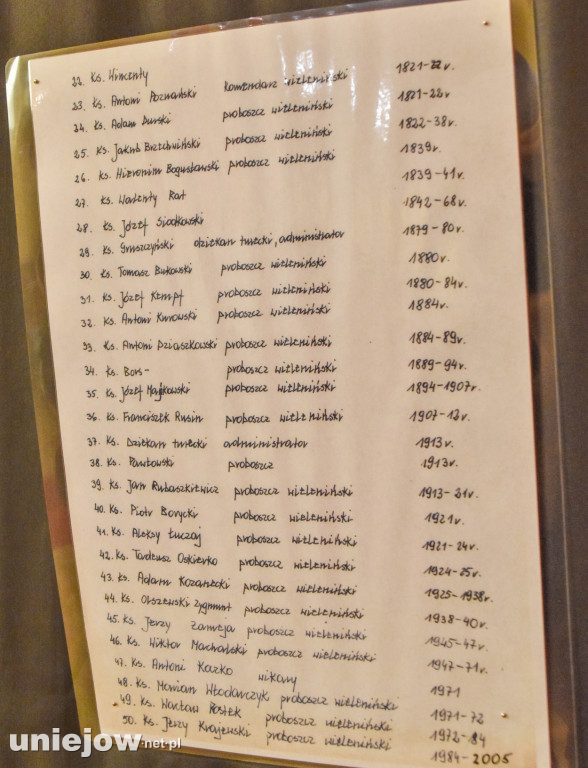 22. Ks. Wincenty 1821-22r.
23. Ks. Antoni Poznański Komendarz wieleniński 1821-22r
24. Ks. Adam Burski proboszcz wieleniński 1822-38r.
25. Ks. Jakub Brzechwiński proboszcz wieleniński 1839r.
26. Ks. Hieronim Bogusławski proboszcz wieleniński 1839-41r.
27. Ks. Walenty Rat 1842-68r.
28. Ks. Józef Siodkowski
29. Ks. Gruszczyński dziekan turecki, administrator 1879-80r.
30. Ks. Tomasz Bukowski proboszcz wieleniński 1880r.
31. Ks. Józef Kempf proboszcz wieleniński 1880-84r.
32. Ks. Antoni Kurowski proboszcz wieleniński 1884r.
33. Ks. Antoni Dziaszkowski proboszcz wieleniński 1884-89r.
34. Ks. Bors- proboszcz wieleniński 1889-94r.
35. Ks. Józef proboszcz wieleniński 1894-1907r.
36. Ks. Franciszek Rusin proboszcz wieleniński 1907-12r.
37. Ks. Dziekan turecki administrator 1913r.
38. Ks. Pawłowski proboszcz 1913r.
39. Ks. Jan Rubaszkiewicz proboszcz wieleniński 1913-21r.
40. Ks. Piotr Borycki proboszcz wieleniński 1921r.
41. Ks. Aleksy Łuczaj proboszcz wieleniński 1921-24r.
42. Ks. Tadeusz Oskierko proboszcz wieleniński 1924-25r.
43. Ks. Adam Kozanecki proboszcz wieleniński 1925-1938r.
44. Ks. Olszewski Zygmunt proboszcz wieleniński 1938-40r.
45. Ks. Jerzy Zameja proboszcz wieleniński 1945-47r.
46. Ks. Wiktor Machalski proboszcz wieleniński 1947-71r.
47. Ks. Antoni Kazko wikary 1971
48. Ks. Marian Włodarczyk proboszcz wieleniński 1971-72
49. Ks. Wacław Rosłek proboszcz wieleniński 1972-84
50. Ks. Jerzy Krajewski proboszcz wieleniński 1984-2005
uniejow.net.pl